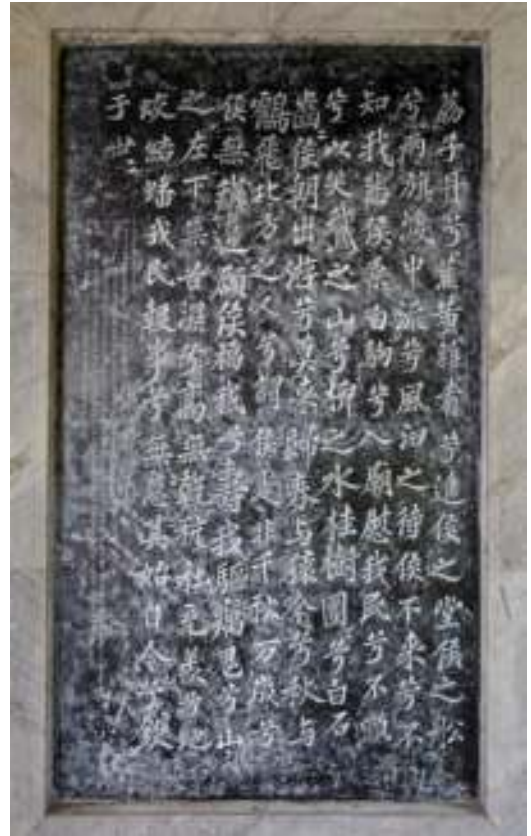 荔子丹兮蕉黃雜肴兮進侯之堂侯之船
兮兩旗渡中流兮風汩之待侯不來兮不
知我悲侯乘白駒兮入廟慰我民兮不嚬
兮以笑鵝之山兮柳之水桂樹團兮白石
齒〻侯朝出游兮暮來歸春与猿吟兮秋与
鶴飛北方之人兮謂侯是非千秋万歲兮
侯無我違願侯福我兮壽我驅厲鬼兮山
之左下無苦濕兮高無乾秔充羡兮虵
蛟結蟠我民報事兮無怠其始自今兮欽
于世〻